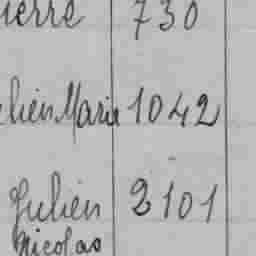 ierre 730
lien Marie 1042
Julien 2101
Nicolas